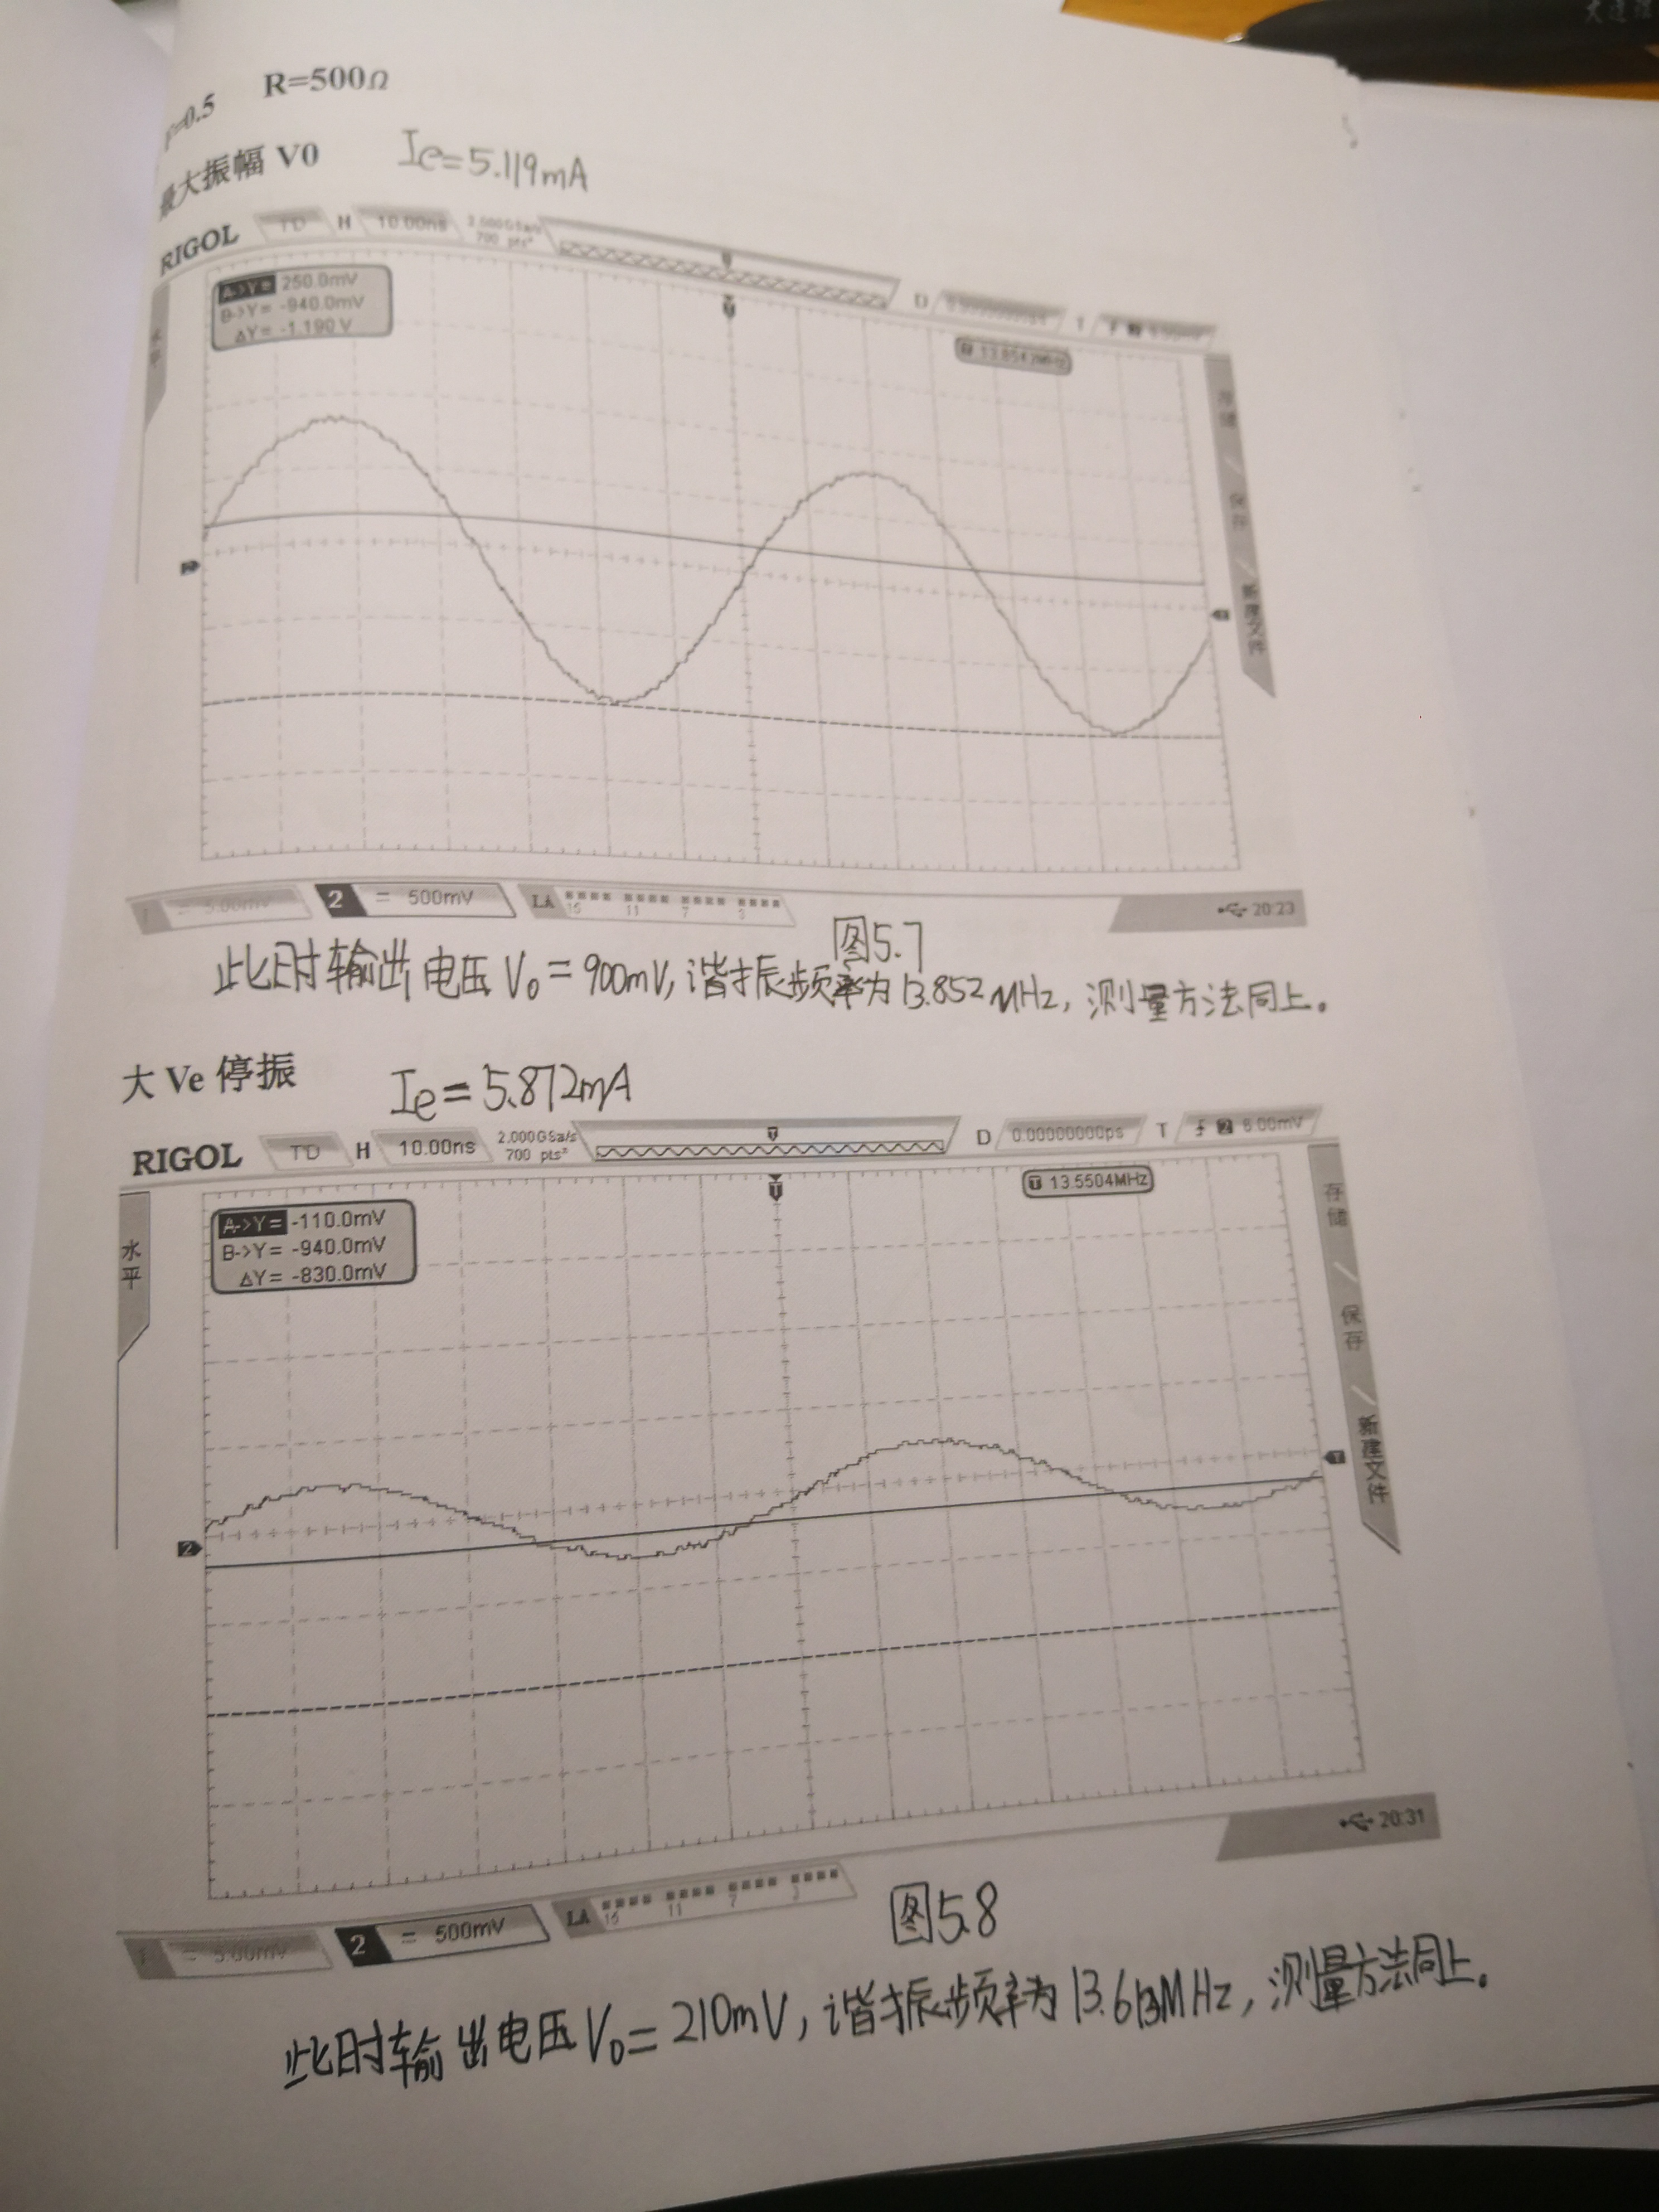 R=500Ω
=0.5
最大振幅 V0 Ie=5.119mA
RIGOL TD H 10.00ns 2.000GSa/s D
700 pts
A->Y= 250.0mV
B->Y= -940.0mV
ΔY= -1.190 V
水平
存储
保存
新建文件
2 = 500mV LA 15 11 7 3 20:23
图5.7
此时输出电压V₀=900mV,谐振频率为13.852MHz,测量方法同上。
大 Ve 停振 Ie=5.872mA
RIGOL TD H 10.00ns 2.000GSa/s D 0.00000000ps T 2 6.00mV
700 pts
T 13.5504MHz
A->Y= -110.0mV
B->Y= -940.0mV
ΔY= -830.0mV
水平
存储
保存
新建文件
2
2 = 500mV LA 15 11 7 3 20:31
图5.8
此时输出电压V₀=210mV,谐振频率为13.613MHz,测量方法同上。